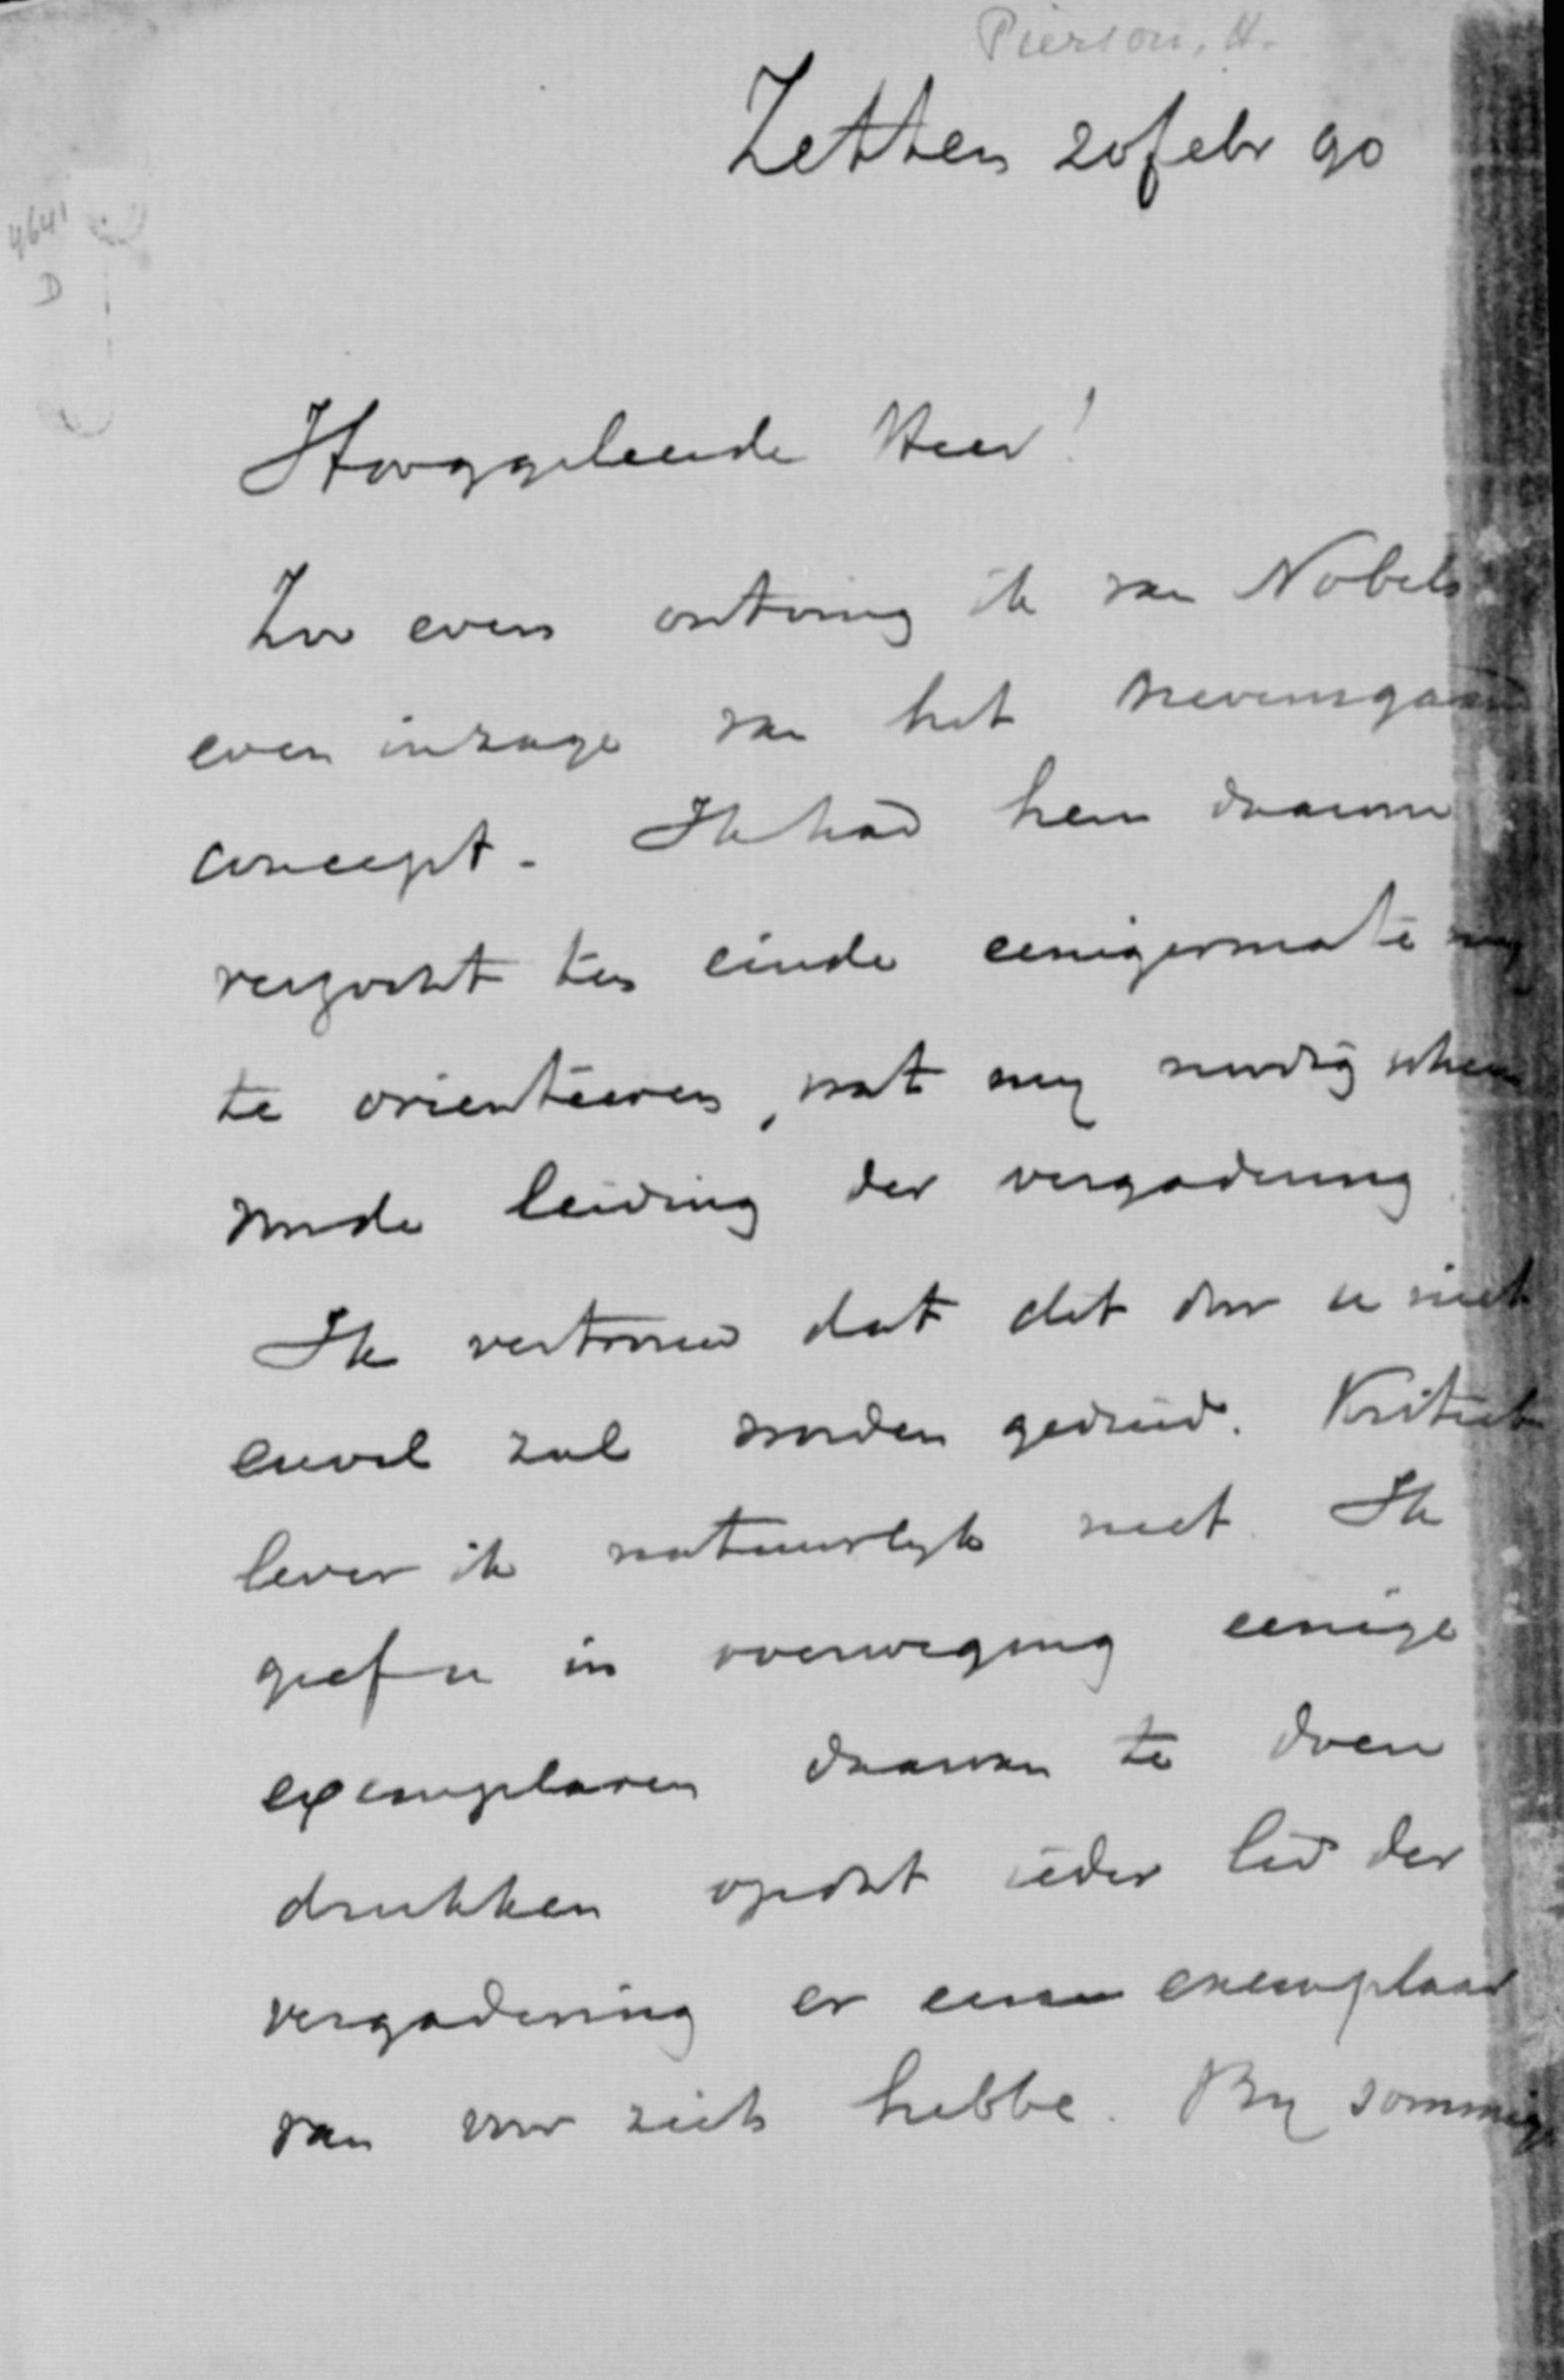 Pierson, H.
Zetten 20 febr 90
4641
D
Hooggeleerde Heer!
Zoo even ontving ik van Nobels
even inzage van het nevensgaand
concept. Ik had hem daarom
verzocht ten einde eenigermate my
te orienteeren, wat my noodig scheen
voor de leiding der vergadering
Ik vertrouw dat dit door u niet
euvel zal worden geduid. Kritiek
lever ik natuurlyk niet. Ik
geef u in overweging eenige
exemplaren daarvan te doen
drukken opdat ieder lid der
vergadering er een exemplaar
van voor zich hebbe. By sommige